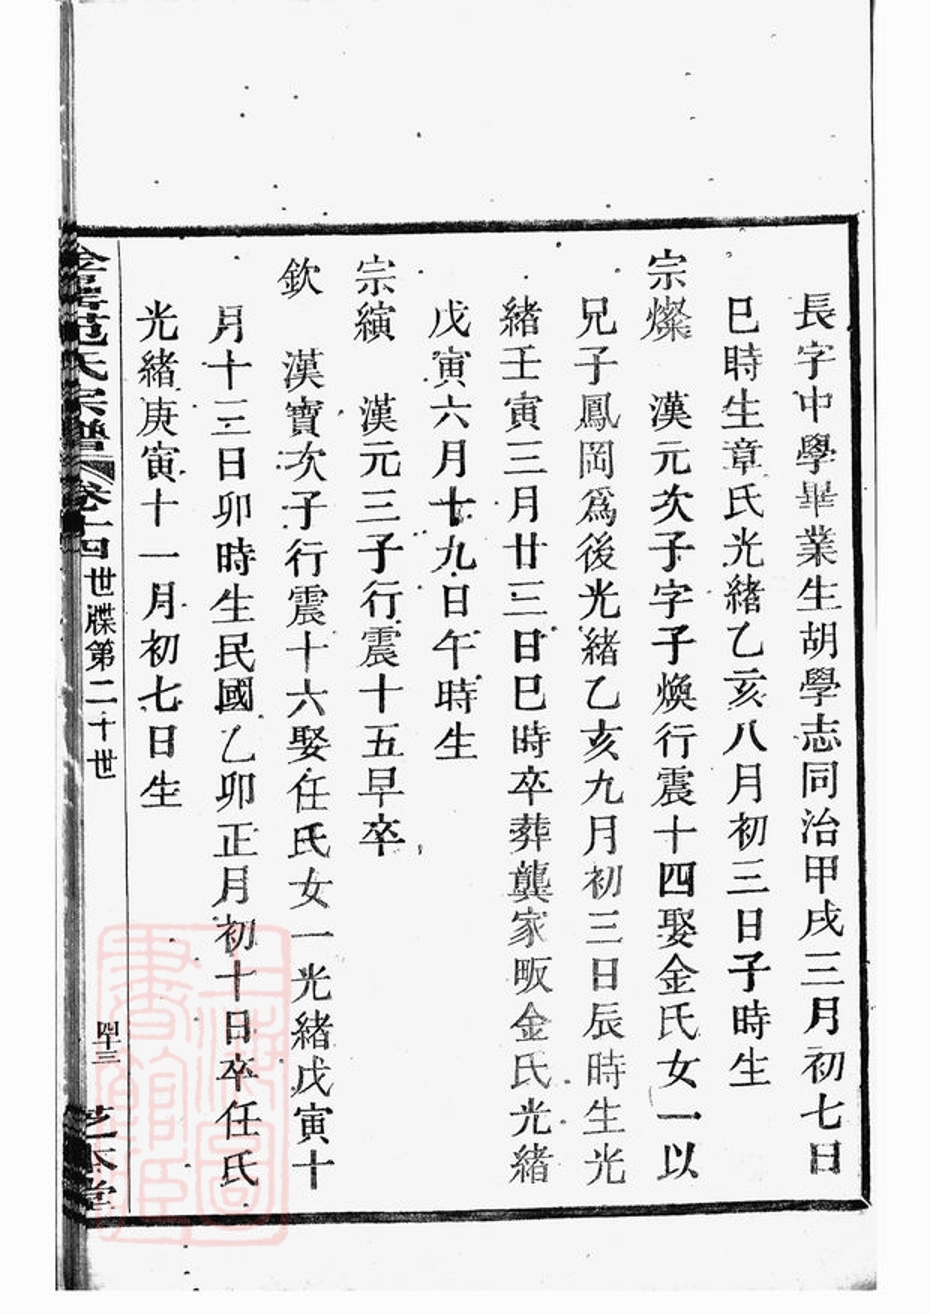 長字中學畢業生胡學志同治甲戌三月初七日
巳時生章氏光緒乙亥八月初三日子時生
宗燦 漢元次子字子煥行震十四娶金氏女一以
兄子鳳岡爲後光緒乙亥九月初三日辰時生光
緒壬寅三月廿三日巳時卒葬龔家畈金氏光緒
戊寅六月十九日午時生
宗縯 漢元三子行震十五早卒
欽 漢寶次子行震十六娶任氏女一光緒戊寅十
月十三日卯時生民國乙卯正月初十日卒任氏
光緒庚寅十一月初七日生
范氏宗譜 卷十四 世牒第二十世 四十三 芝本堂
上海圖書館藏